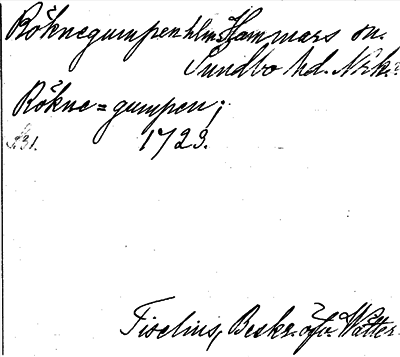 Röknegumpen hlm Hammars sn.
Sundbo hd. Nrk.
Rökne=gumpen;
1723.
Tiselius, Beskr. öfv. Wätter